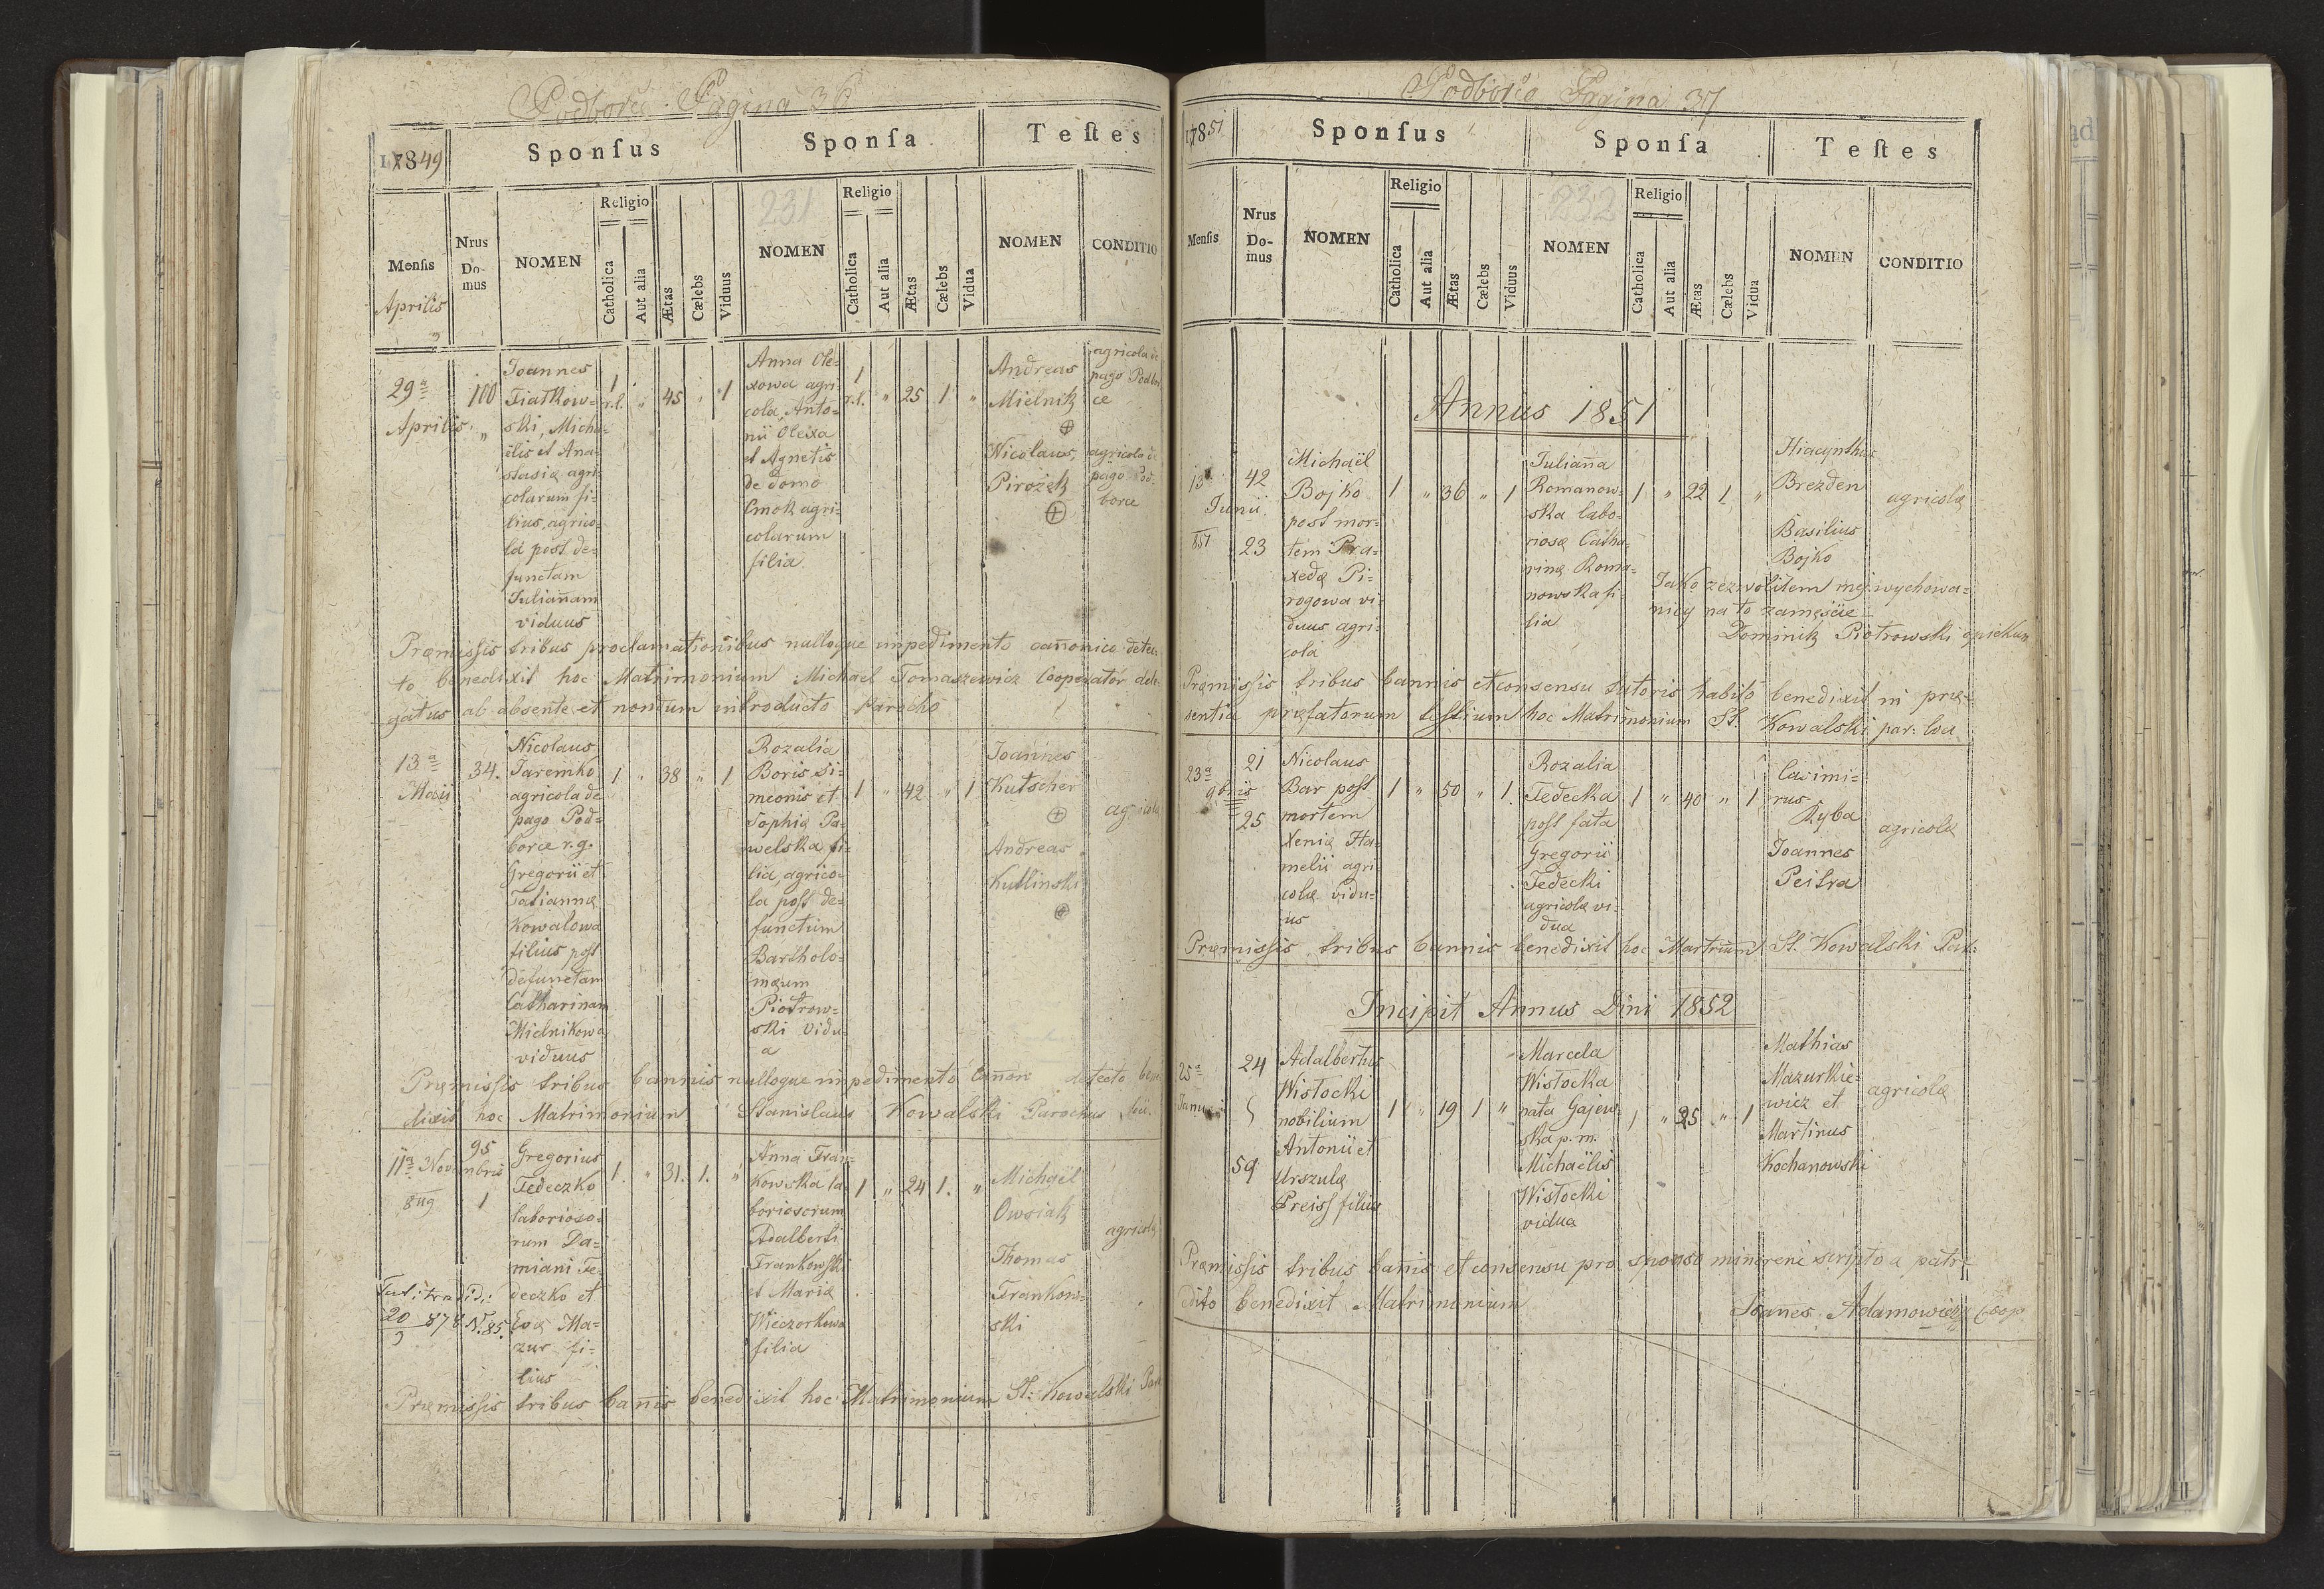 Podborce Pagina 36
17849
Sponſus
Sponſa
Teſtes
Menſis
Aprilis
Nrus Do-
mus
NOMEN
Religio
Catholica
Aut alia
Ætas
Cælebs
Viduus
231
NOMEN
Religio
Catholica
Aut alia
Ætas
Cælebs
Vidua
NOMEN
CONDITIO
29a
Aprilis
100
Joannes
Fiałkow-
ski, Micha-
ëlis et Ana-
stasiæ agri-
colarum fi-
lius, agrico-
la post de-
functam
Juliannam
viduus
1
r.l.
"
45
"
1
Anna Ole-
xowa agri-
cola, Anto-
nii Olexa
et Agnetis
de domo
Smok agri-
colarum
filia.
1
r.l.
"
25
1
"
Andreas
Mielnik
Nicolaus
Pirożek
agricola de
pago Podbor
ce
agricola de
pago Pod-
borce
Præmissis tribus proclamationibus nulloque impedimento cannonico detec-
to benedixit hoc Matrimonium Michael Tomaszewicz Cooperator dele-
gatus ab absente et nondum introducto Parocho
13a
Maij
34.
Nicolaus
Jaremko
agricola de
pago Pod-
borce r.g.
Gregorii et
Tatiannæ
Kowalowa
filius post
defunctam
Catharinam
Mielnikowa
viduus
1
"
38
"
1
Rozalia
Boris Si-
meonis et
Sophiæ Pa-
welska fi-
lia, agrico-
la post de-
functum
Bartholo-
mæum
Piotrow-
ski vidu-
a
1
"
42
"
1
Joannes
Kutscher
Andreas
Kutlinski
agricola
Præmissis tribus bannis nulloque impedimento Canon detecto bene
dixit hoc Matrimonium Stanislaus Kowalski Parochus
11a Novembris
849
95
1
Gregorius
Fedeczko
laborioso-
rum Da-
miani Fe-
deczko et
Evæ Ma-
zur fi-
lius
1.
"
31.
1.
"
Anna Fran-
kowska la-
boriosorum
Adalberti
Frankowski
et Mariæ
Wieczorkowa
filia
1
"
24
1.
"
Michaël
Owsiak
Thomas
Frankow-
ski
agricolæ
20/9 878 N. 85.
Præmissis tribus bannis benedixit hoc Matrimonium St: Kowalski Par
Podborce Pagina 37
17851
Sponſus
Sponſa
Teſtes
Menſis
Nrus
Do-
mus
NOMEN
Religio
Catholica
Aut alia
Ætas
Cælebs
Viduus
232
NOMEN
Religio
Catholica
Aut alia
Ætas
Cælebs
Vidua
NOMEN
CONDITIO
Annus 1851
13a
Junii
851
42
23
Michaël
Bojko
post mor-
tem Pra-
xedæ Pi-
rogowa vi-
duus agri-
cola
1
"
36
"
1
Julianna
Romanow-
ska labo-
riosæ Catha-
rinæ Roma-
nowska fi-
lia
1
"
22
1
"
Hiacynthus
Brezden
Basilius
Bojko
agricolæ
Jako zezwoliłem mej wychowa-
nicy na to zamęście
Dominik Piotrowski opiekun
Præmissis tribus bannis et consensu tutoris habito benedixit in præ-
sentia præfatorum testium hoc Matrimonium St. Kowalski par: loci
23a
9bris
21
25
Nicolaus
Bar post
mortem
Xeniæ Ha-
melii agri-
colæ vidu-
us
1
"
50
"
1.
Rozalia
Fedecka
post fata
Gregorii
Fedecki
agricolæ vi-
dua
1
"
40
"
1
Casimi-
rus
Ryba
Joannes
Peitra
agricolæ
Præmissis tribus bannis benedixit hoc Martrium St. Kowalski Par:
Incipit Annus Dini 1852
25a
Januarii
24
59
Adalbertus
Wisłocki
nobilium
Antonii et
Urszulæ
Preiss filius
1
"
19
1
"
Marcela
Wisłocka
nata Gajew-
ska p. m.
Michaëlis
Wisłocki
vidua
1
"
25
"
1
Mathias
Mazurkie-
wicz et
Martinus
Kochanowski
agricolæ
Præmissis tribus bannis et consensu pro sponso minoreni scripto a patre
dito benedixit Matrimonium Joanes Adamowicz Coop.